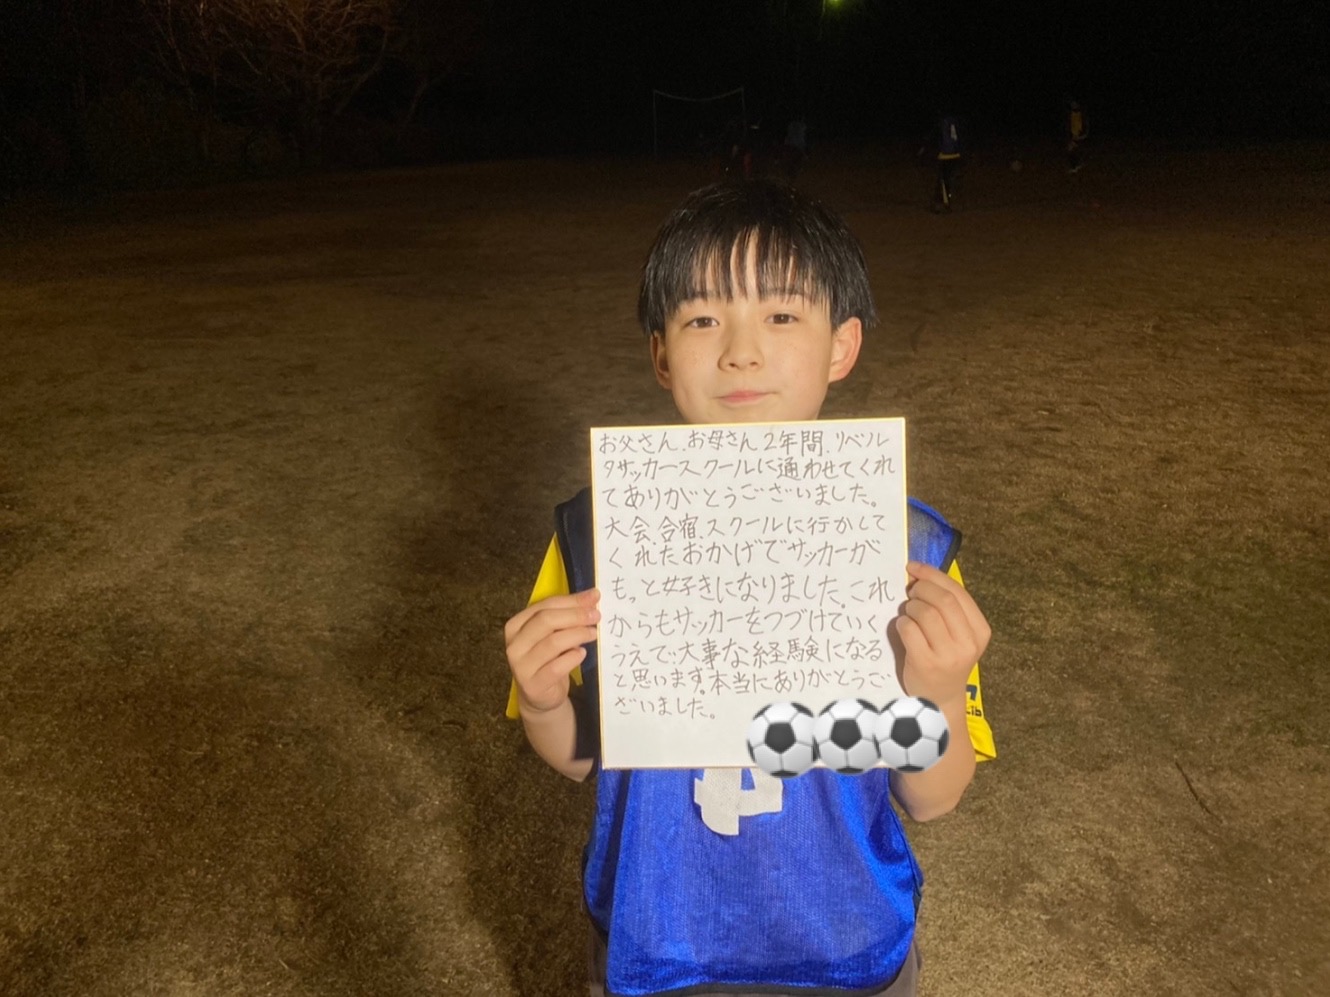 お父さん、お母さん2年間、リベル
タサッカースクールに通わせてくれ
てありがとうございました。
大会、合宿、スクールに行かして
くれたおかげでサッカーが
もっと好きになりました。これ
からもサッカーをつづけていく
うえで、大事な経験になる
と思います。本当にありがとうご
ざいました。